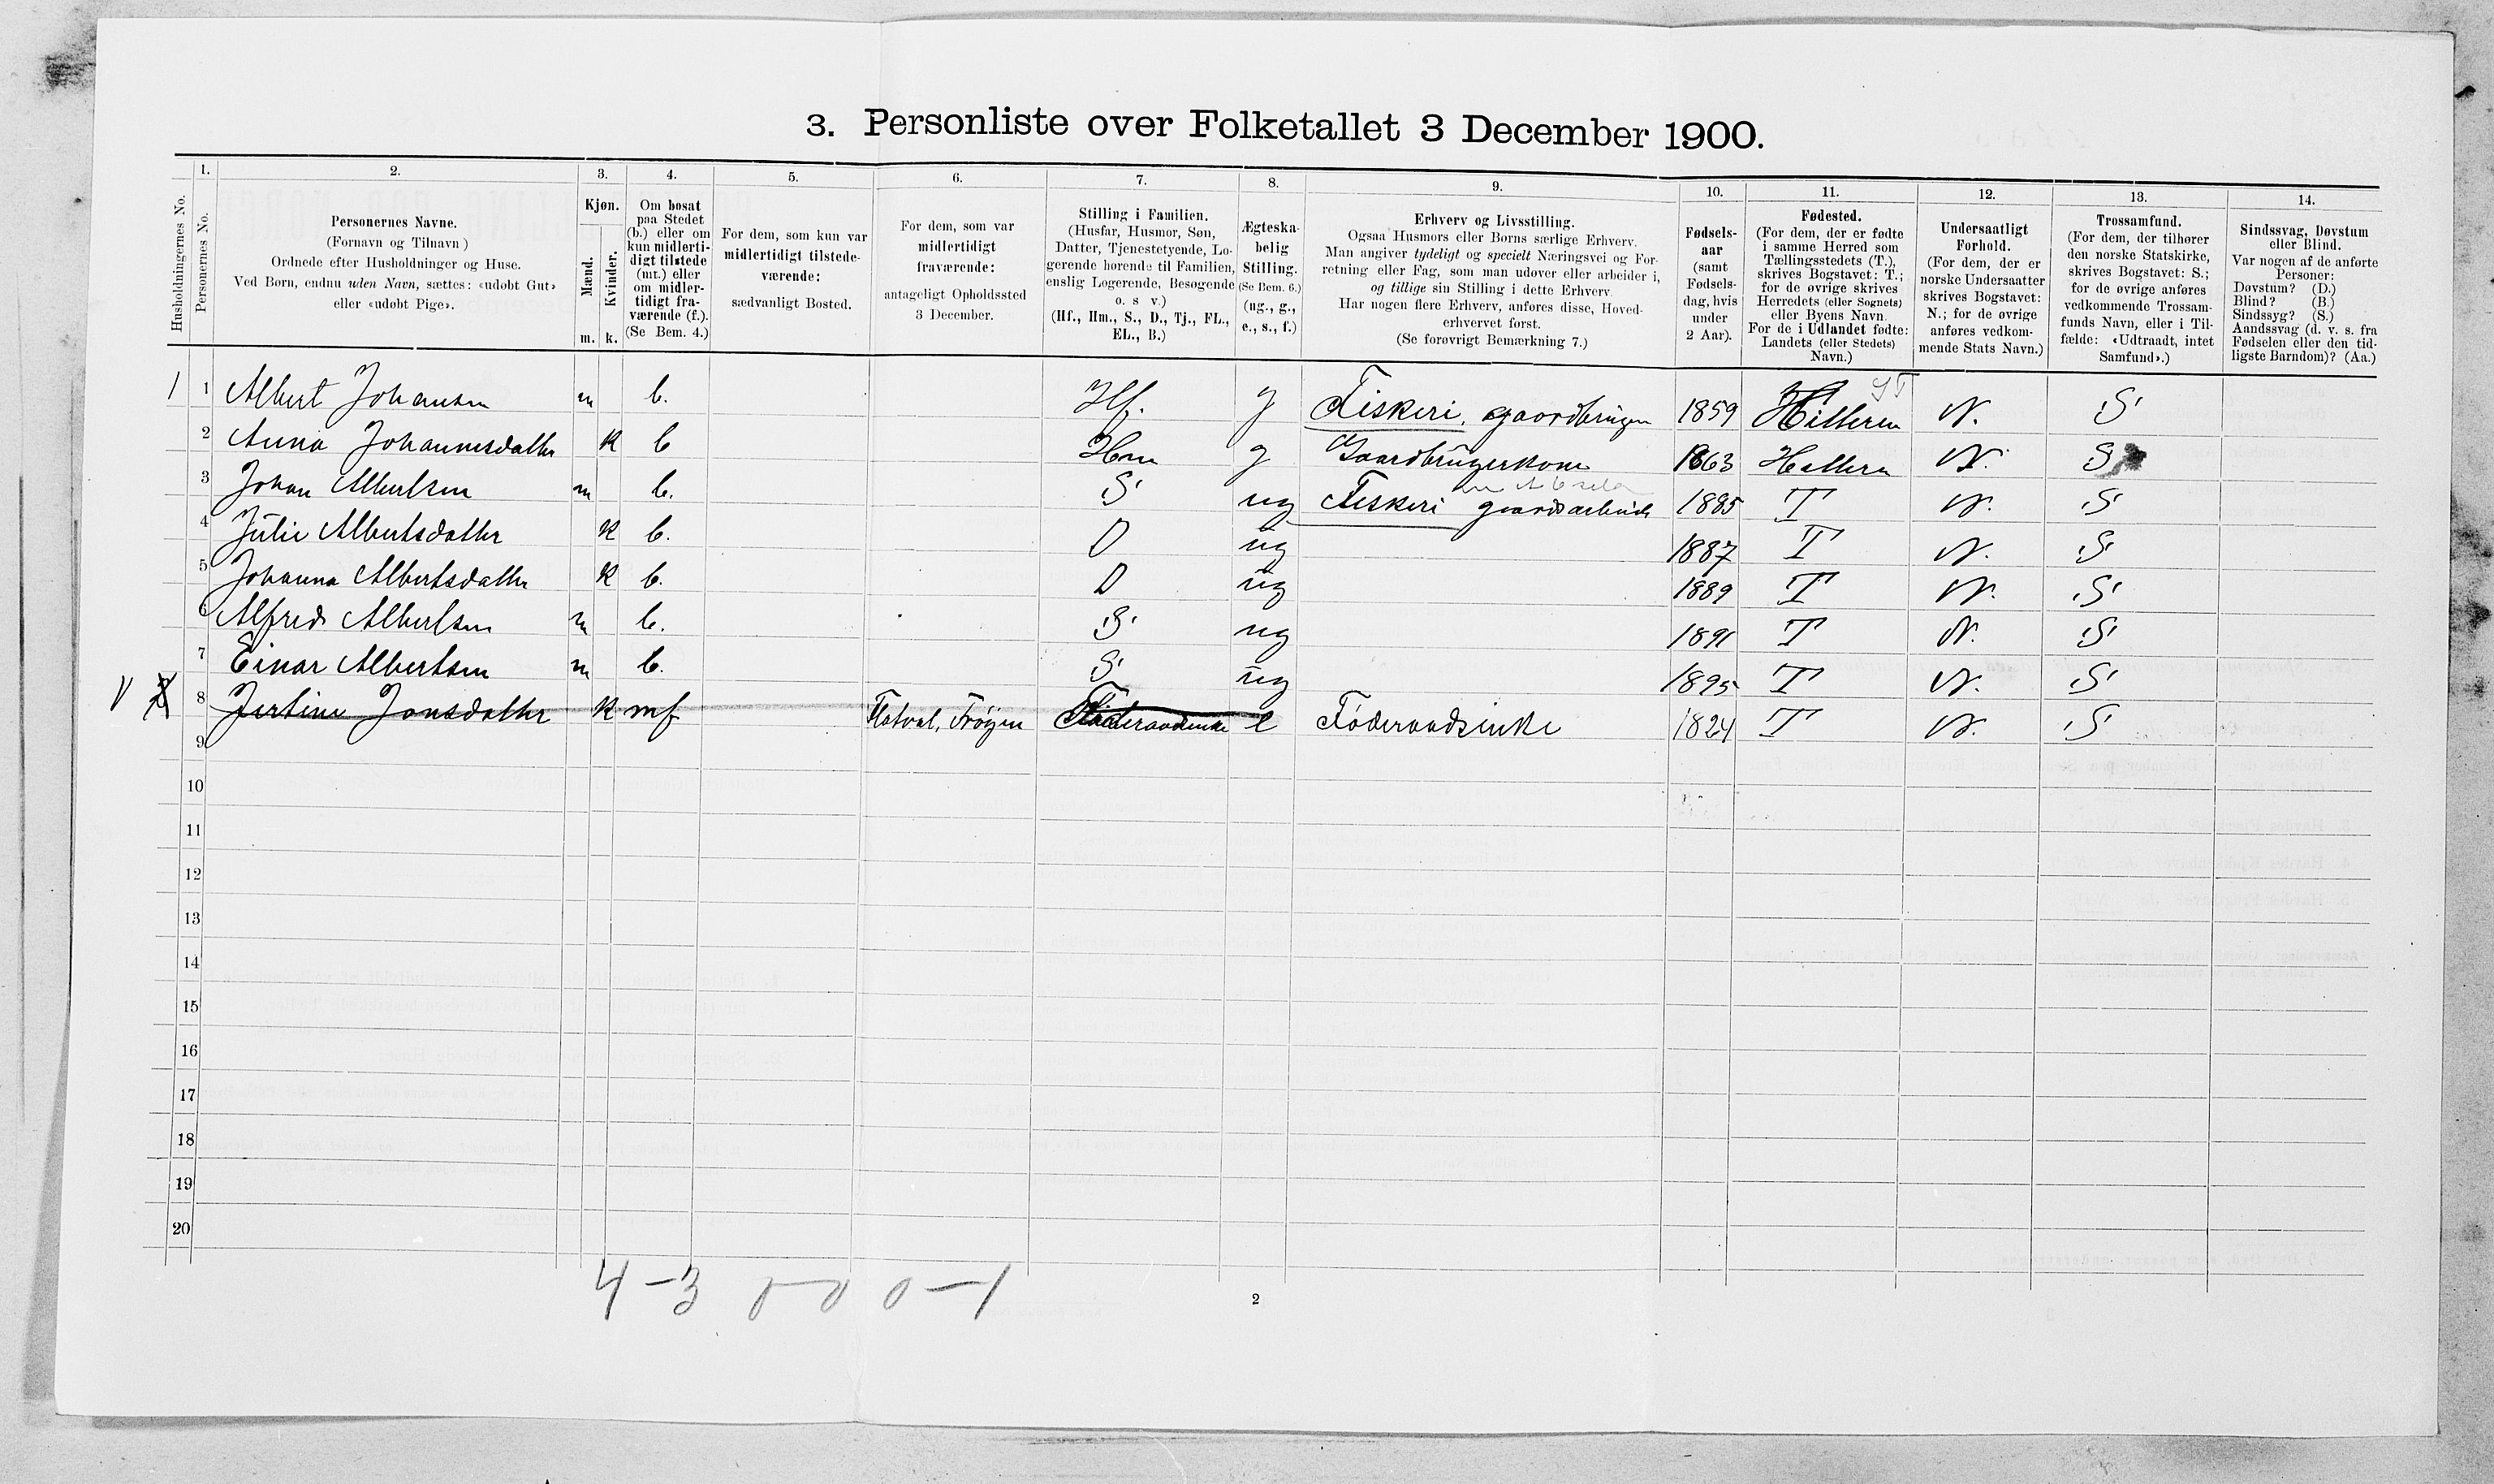 3. Personliste over Folketallet 3 December 1900.
Husholdningernes No.
1.
Personernes No.
2.
Personernes Navne.
(Fornavn og Tilnavn)
Ordnede efter Husholdninger og Huse.
Ved Børn, endnu uden Navn, sættes: «udøbt Gut»
eller «udøbt Pige».
3.
Kjøn.
Mænd.
Kvinder.
m. k.
4.
Om bosat
paa Stedet
(b.) eller om
kun midlerti-
digt tilstede
(mt.) eller
om midler-
tidigt fra-
værende (f.).
(Se Bem. 4.)
5.
For dem, som kun var
midlertidigt tilstede-
værende:
sædvanligt Bosted.
6.
For dem, som var
midlertidigt
fraværende:
antageligt Opholdssted
3 December.
7.
Stilling i Familien.
(Husfar, Husmor, Søn,
Datter, Tjenestetyende, Lo-
gerende hørende til Familien,
enslig Logerende, Besøgende
o. s v.)
(Hf., Hm., S., D., Tj., FL.,
EL., B.)
8.
Ægteska-
belig
Stilling.
(Se Bem. 6.)
(ug., g.,
e., s., f.)
9.
Erhverv og Livsstilling.
Ogsaa Husmors eller Børns særlige Erhverv.
Man angiver tydeligt og specielt Næringsvei og For-
retning eller Fag, som man udøver eller arbeider i,
og tillige sin Stilling i dette Erhverv.
Har nogen flere Erhverv, anføres disse, Hoved-
erhvervet først.
(Se forøvrigt Bemærkning 7.)
10.
Fødsels-
aar
(samt
Fødsels-
dag, hvis
under
2 Aar).
11.
Fødested.
(For dem, der er fødte
i samme Herred som
Tællingsstedets (T.),
skrives Bogstavet: T.;
for de øvrige skrives
Herredets (eller Sognets)
eller Byens Navn.
For de i Udlandet fødte:
Landets (eller Stedets)
Navn.)
12.
Undersaatligt
Forhold.
(For dem, der er
norske Undersaatter
skrives Bogstavet:
N.; for de øvrige
anføres vedkom-
mende Stats Navn.)
13.
Trossamfund.
(For dem, der tilhører
den norske Statskirke,
skrives Bogstavet: S.;
for de øvrige anføres
vedkommende Trossam-
funds Navn, eller i Til-
fælde: «Udtraadt, intet
Samfund».)
14.
Sindssvag, Døvstum
eller Blind.
Var nogen af de anførte
Personer:
Døvstum? (D.)
Blind? (B.)
Sindssyg? (S.)
Aandssvag (d. v. s. fra
Fødselen eller den tid-
ligste Barndom)? (Aa.)
1 1 Albert Johansen m b. Hf. g Fiskeri, gaardbruger 1859 Hitteren ST N. S
2 Anna Johannesdatter k b Hm g Gaardbrugerkone 1863 Hitteren N. S
3 Johan Albertsen m b. S ug Fiskeri gaardsarbeide 1885 T N. S
4 Julie Albertsdatter k b. D ug 1887 T N. S
5 Johanna Albertsdatter k b. D ug 1889 T N. S
6 Alfred Albertsen m b. S ug 1891 T N. S
7 Einar Albertsen m b. S ug 1895 T N. S
8 Jertine Jonsdatter k mf Flatval, Frøyen Föderaadsenke e Föderaadsenke 1824 T N. S
9
10
11
12
13
14
15
16
17
18
19
20
4-3 0-0 0-1
2